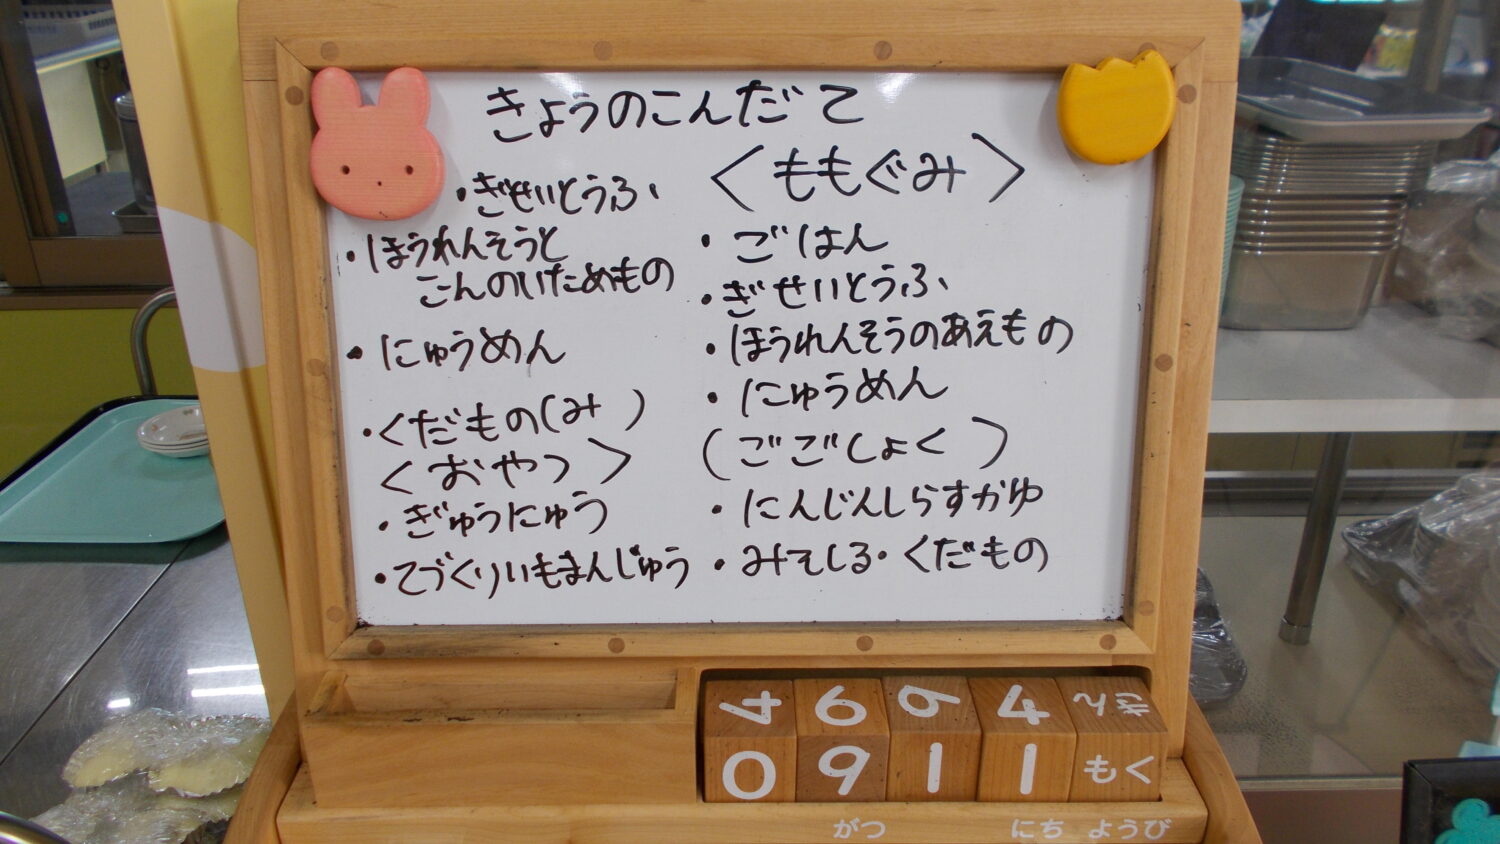 きょうのこんだて
・ぎせいとうふ
・ほうれんそうと
こんのいためもの
・にゅうめん
・くだもの(み )
<おやつ>
・ぎゅうにゅう
・てづくりいもまんじゅう
<ももぐみ>
・ごはん
・ぎせいとうふ
・ほうれんそうのあえもの
・にゅうめん
(ごごしょく)
・にんじんしらすかゆ
・みそしる・くだもの
4 6 9 4
0 9 1 1 もく
がつ にち ようび